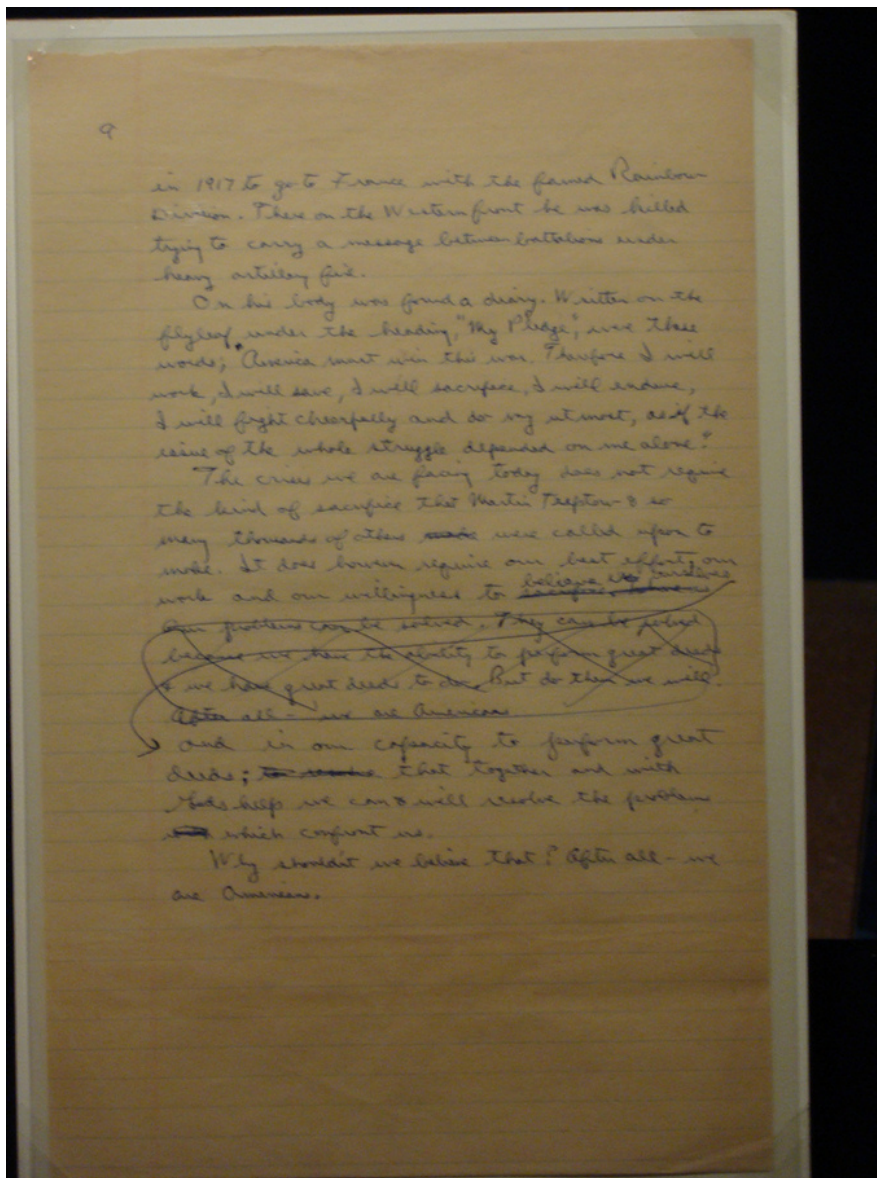 9
in 1917 to go to France with the famed Rainbow
Division. There on the Western front he was killed
trying to carry a message between battalions under
heavy artillery fire.
On his body was found a diary. Written on the
flyleaf under the heading, "My Pledge", were these
words; "America must win this war. Therefore I will
work, I will save, I will sacrifice, I will endure,
I will fight cheerfully and do my utmost, as if the
issue of the whole struggle depended on me alone."
The crises we are facing today does not require
the kind of sacrifice that Martin Treptow & so
many thousands of others were called upon to
make. It does however require our best effort, our
believe in ourselves
work and our willingness to
Our problems can be solved. They can be solved
because we have the ability to perform great deeds
& we have great deeds to do. But do them we will.
After all - we are Americans
and in our capacity to perform great
deeds; that together and with
Gods help we can & will resolve the problems
which confront us.
Why shouldn't we believe that? After all - we
are Americans.